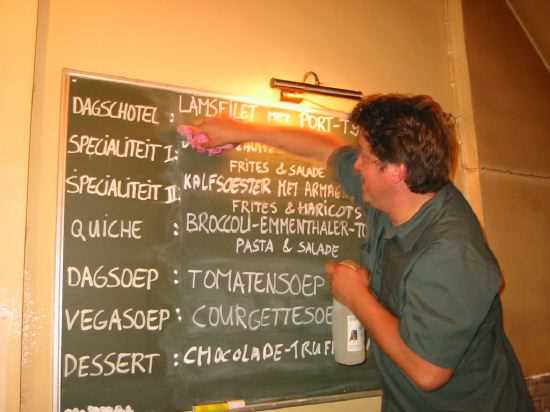 DAGSCHOTEL : LAMSFILET MET PORT-TY
SPECIALITEIT I :
FRITES & SALADE
SPECIALITEIT II : KALFSOESTER MET ARMAG
FRITES & HARICOTS
QUICHE : BROCCOLI-EMMENTHALER-TO
PASTA & SALADE
DAGSOEP : TOMATENSOEP
VEGASOEP : COURGETTESOE
DESSERT : CHOCOLADE-TRUFF